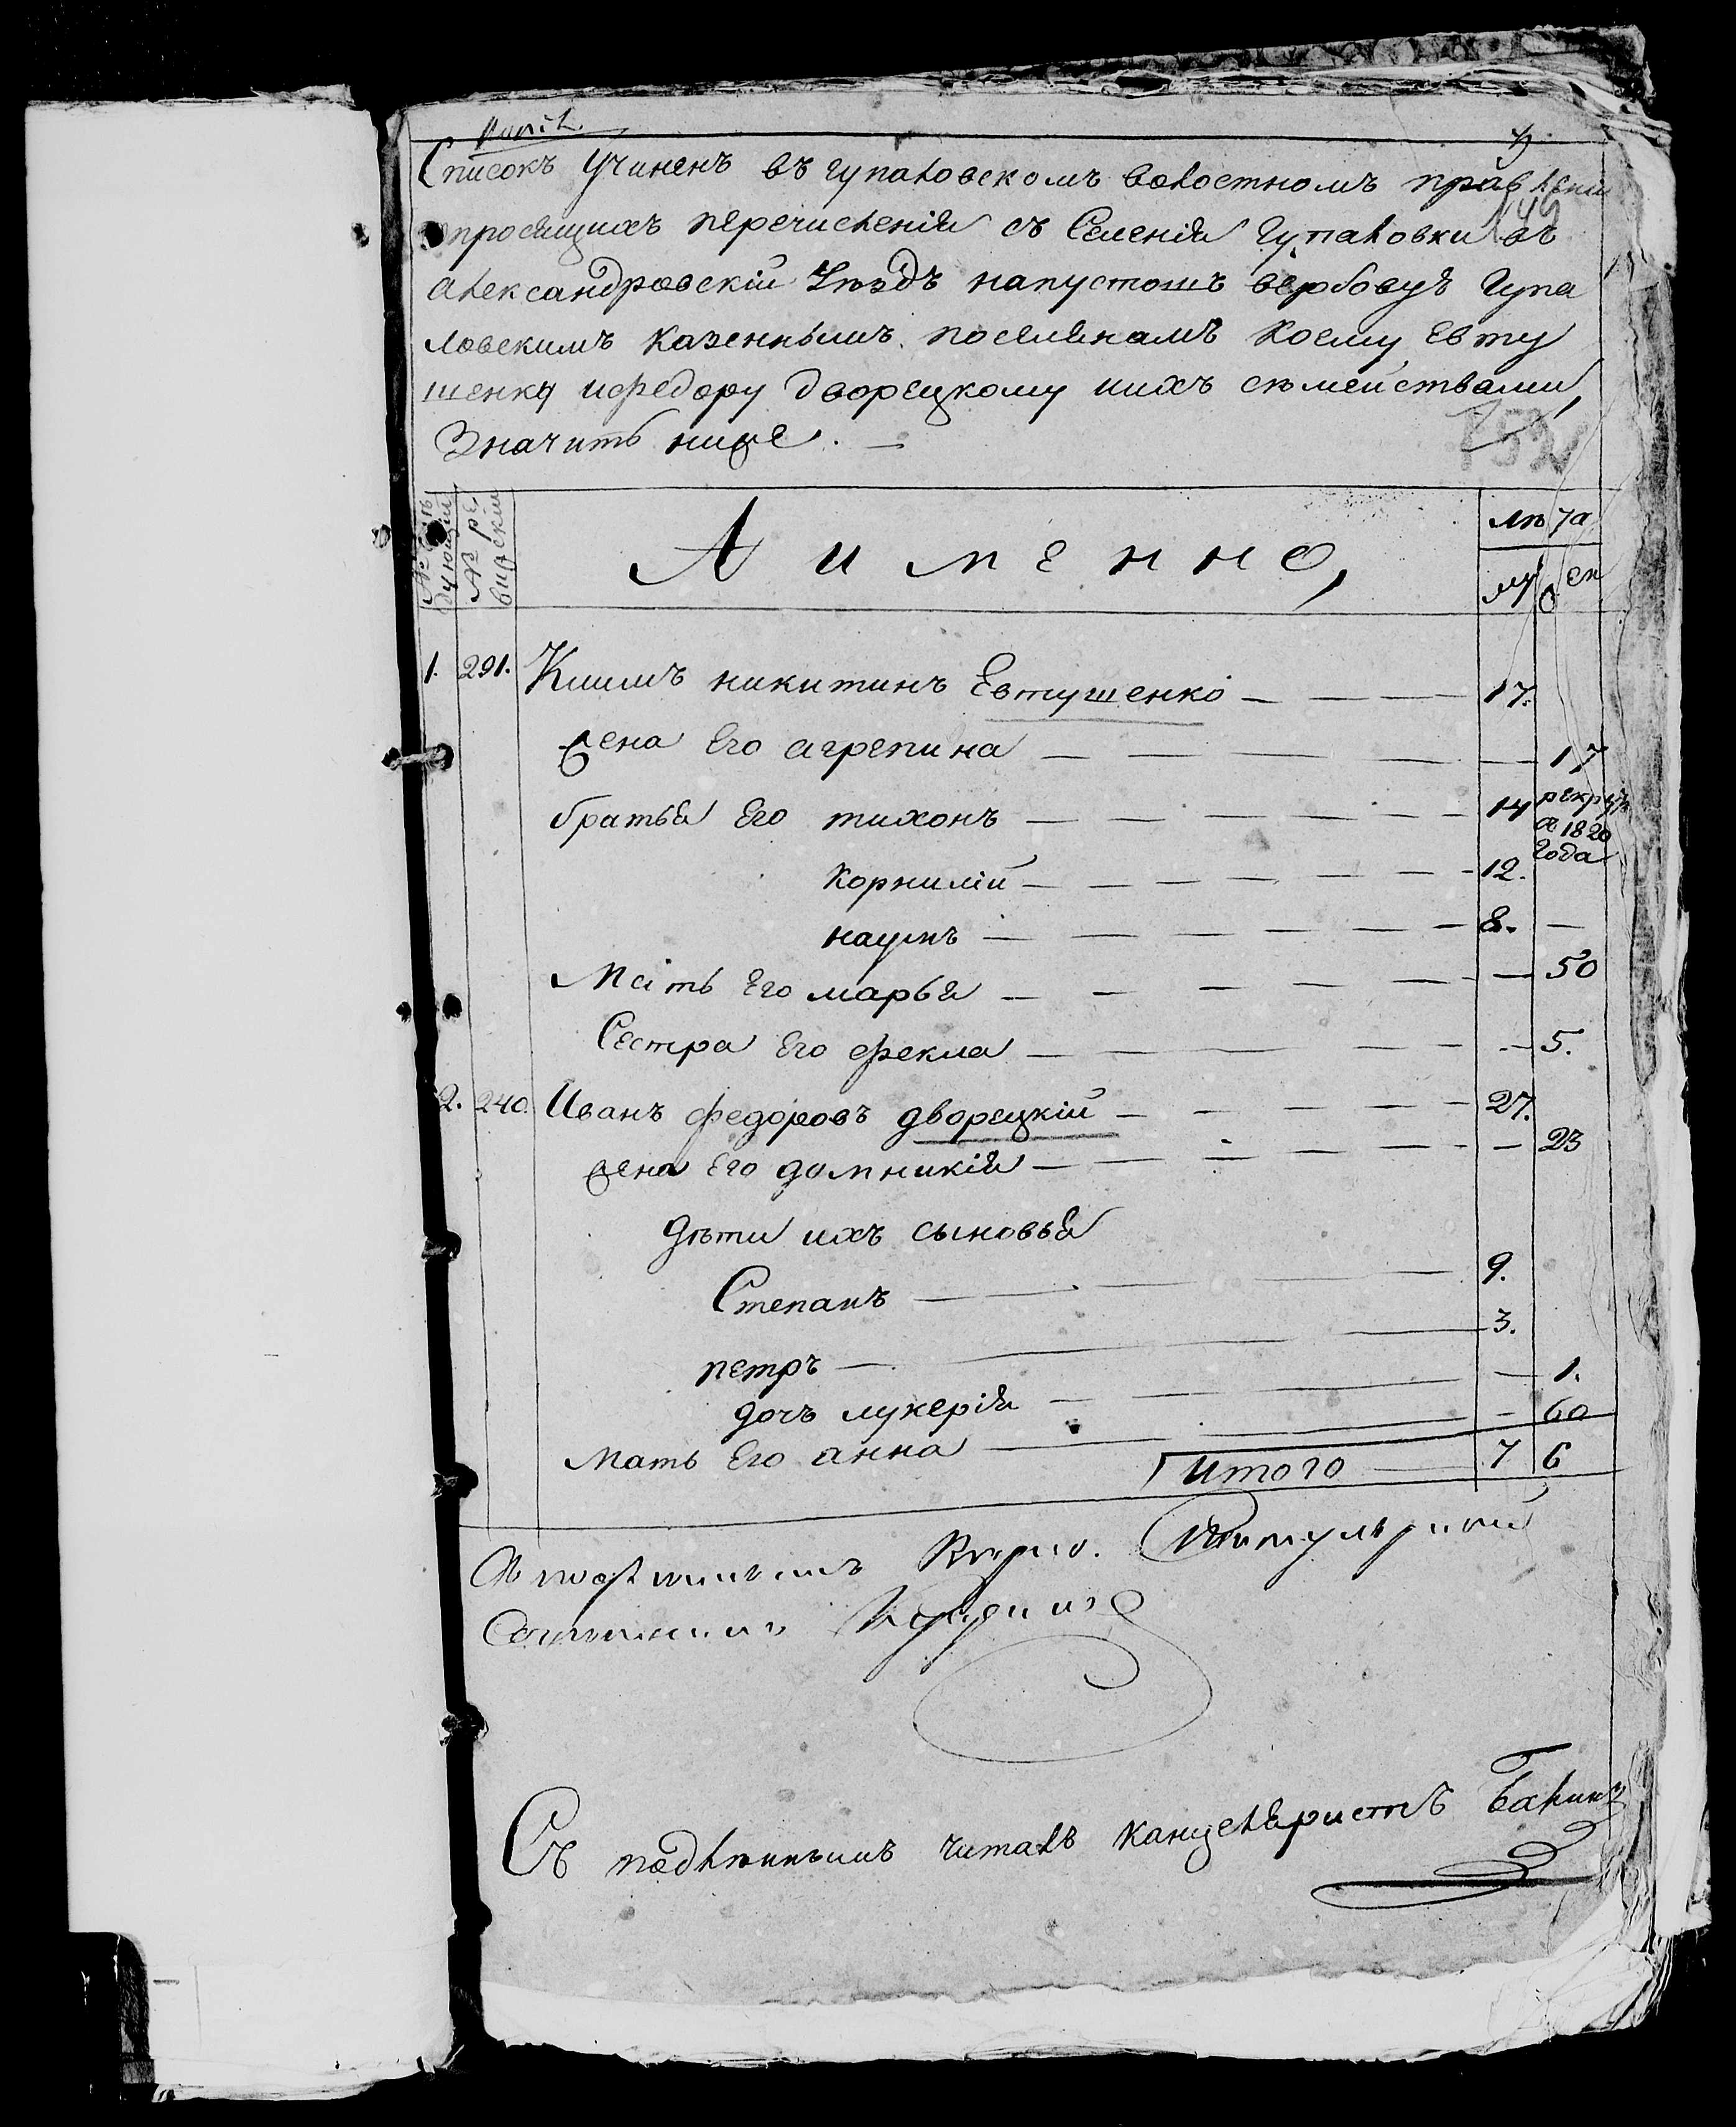 Списокъ Учиненъ въ гупаловскомъ волостномъ правленіи
опросящихъ перечисленія съ Селенія Гупаловки въ
александровскій Уѣздъ напустошъ вербовуъ Гупа
ловскимъ казеннымъ поселянамъ Коему Евту
шенку ифедору дворецкому иихъ сѣмействами,
Значитъ ниже. —
152
А именно,
лѣта
№ ре-
визскій
му жен
1. 291. Климъ никитинъ Евтушенко — 17.
жена Его агрепина — 17
братья Его тихонъ — 14 рекрутъ
въ 1820
года
Корнилій — 12.
наумъ — 8. —
Мать Его марья — 50
Сестра Его фекла — 5.
2. 240. Иванъ федоровъ дворецкій — 27.
жена Его домникія — 23
дѣти ихъ сыновья
Степанъ — 9.
петръ — 3.
дочъ лукерія — 1.
мать Его анна — 60
Итого — 7 6
Титулярный
Съ подлѣннымъ читалъ канцеляристъ